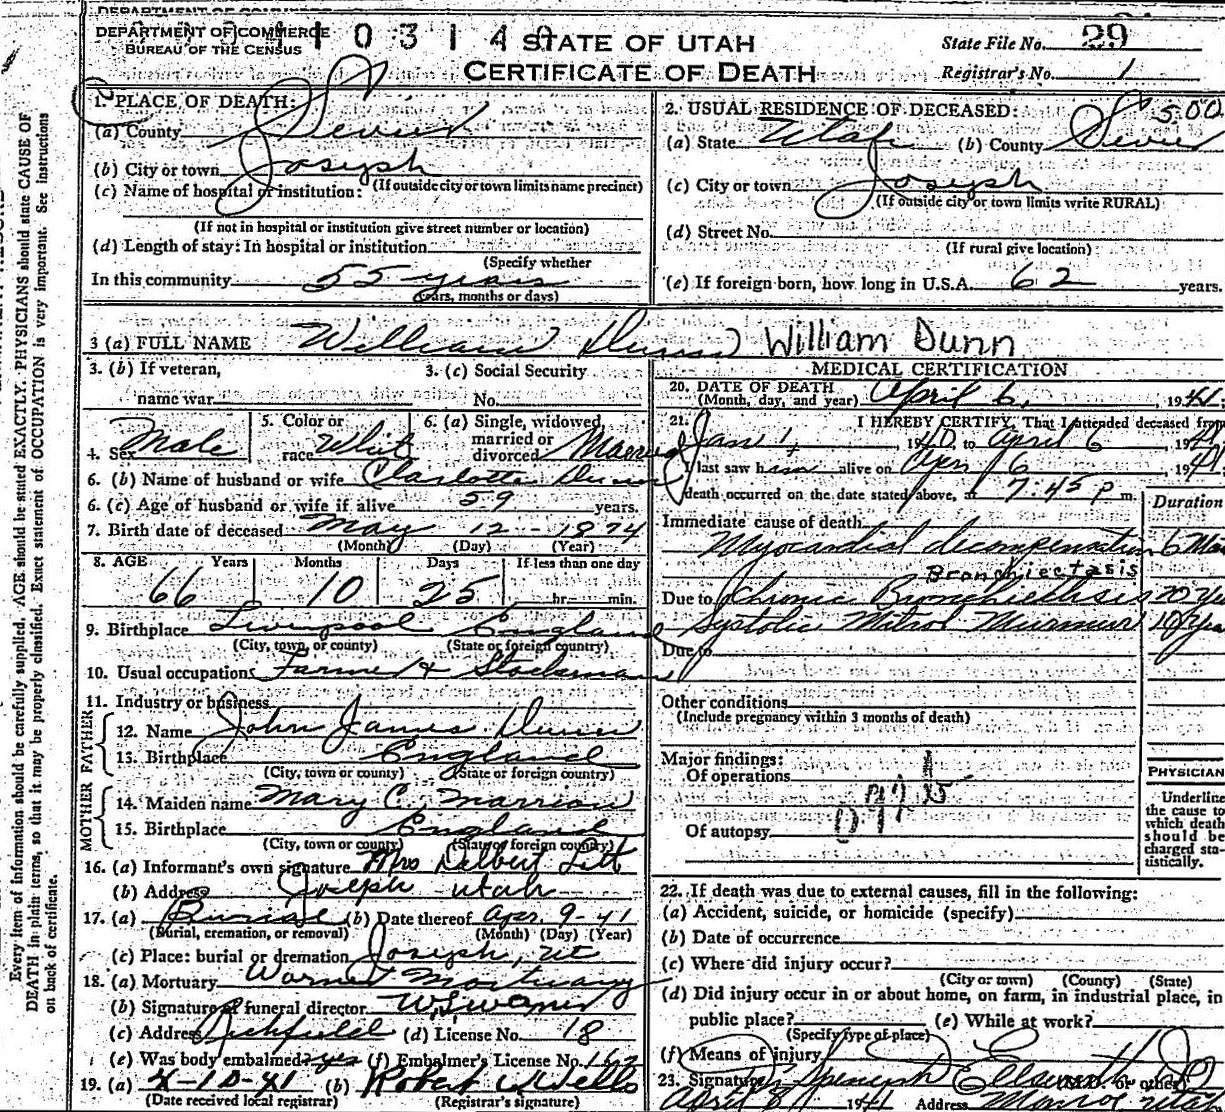 DEPARTMENT OF COMMERCE
BUREAU OF THE CENSUS
1 0 3 1 4
STATE OF UTAH
CERTIFICATE OF DEATH
State File No. 29
Registrar's No. 1
1. PLACE OF DEATH:
(a) County Sevier
(b) City or town Joseph
(If outside city or town limits name precinct)
(c) Name of hospital or institution:
(If not in hospital or institution give street number or location)
(d) Length of stay: In hospital or institution
(Specify whether
In this community 55 years
years, months or days)
2. USUAL RESIDENCE OF DECEASED: 500
(a) State Utah (b) County Sevier
(c) City or town Joseph
(If outside city or town limits write RURAL)
(d) Street No.
(If rural give location)
(e) If foreign born, how long in U.S.A. 62 years.
3 (a) FULL NAME William Dunn William Dunn
3. (b) If veteran, name war
3. (c) Social Security No.
4. Sex Male
5. Color or race White
6. (a) Single, widowed, married or divorced Married
6. (b) Name of husband or wife Charlotte Dunn
6. (c) Age of husband or wife if alive 59 years.
7. Birth date of deceased May 12 - 1874
(Month) (Day) (Year)
8. AGE Years Months Days If less than one day
66 10 25 hr. min.
9. Birthplace Liverpool England
(City, town, or county) (State or foreign country)
10. Usual occupation Farmer & Stockman
11. Industry or business
FATHER
12. Name John James Dunn
13. Birthplace England
(City, town or county) (State or foreign country)
MOTHER
14. Maiden name Mary C. Marrion
15. Birthplace England
(City, town or county) (State or foreign country)
16. (a) Informant's own signature Mrs Delbert Litt
(b) Address Joseph Utah
17. (a) Burial (b) Date thereof Apr. 9-41
(Burial, cremation, or removal) (Month) (Day) (Year)
(c) Place: burial or cremation Joseph, Ut
18. (a) Mortuary Warner Mortuary
(b) Signature of funeral director
(c) Address Richfield (d) License No. 18
(e) Was body embalmed? yes (f) Embalmer's License No.
19. (a) 4-10-41 (b) Robert
(Date received local registrar) (Registrar's signature)
MEDICAL CERTIFICATION
20. DATE OF DEATH
(Month, day, and year) April 6, 1941
21. I HEREBY CERTIFY, That I attended deceased from
Jan 1, 1940 to April 6 1941
I last saw him alive on Apr 6 1941
death occurred on the date stated above, at 7:45 P m.
Duration
Immediate cause of death
Myocardial decompensation 6 Mo
Bronchiectasis
Due to Chronic Bronchiectasis 20 Yr
Systolic Mitral Murmur 10 Year
Due to
Other conditions
(Include pregnancy within 3 months of death)
Major findings:
Of operations
Of autopsy
PHYSICIAN
Underline the cause to which death should be charged statistically.
22. If death was due to external causes, fill in the following:
(a) Accident, suicide, or homicide (specify)
(b) Date of occurrence
(c) Where did injury occur?
(City or town) (County) (State)
(d) Did injury occur in or about home, on farm, in industrial place, in
public place? (e) While at work?
(Specify type of place)
(f) Means of injury
23. Signature Ellsworth (M.D. or other)
April 8 1941 Address Monroe Utah
Every item of information should be carefully supplied. AGE should be stated EXACTLY. PHYSICIANS should state CAUSE OF
DEATH in plain terms, so that it may be properly classified. Exact statement of OCCUPATION is very important. See instructions
on back of certificate.